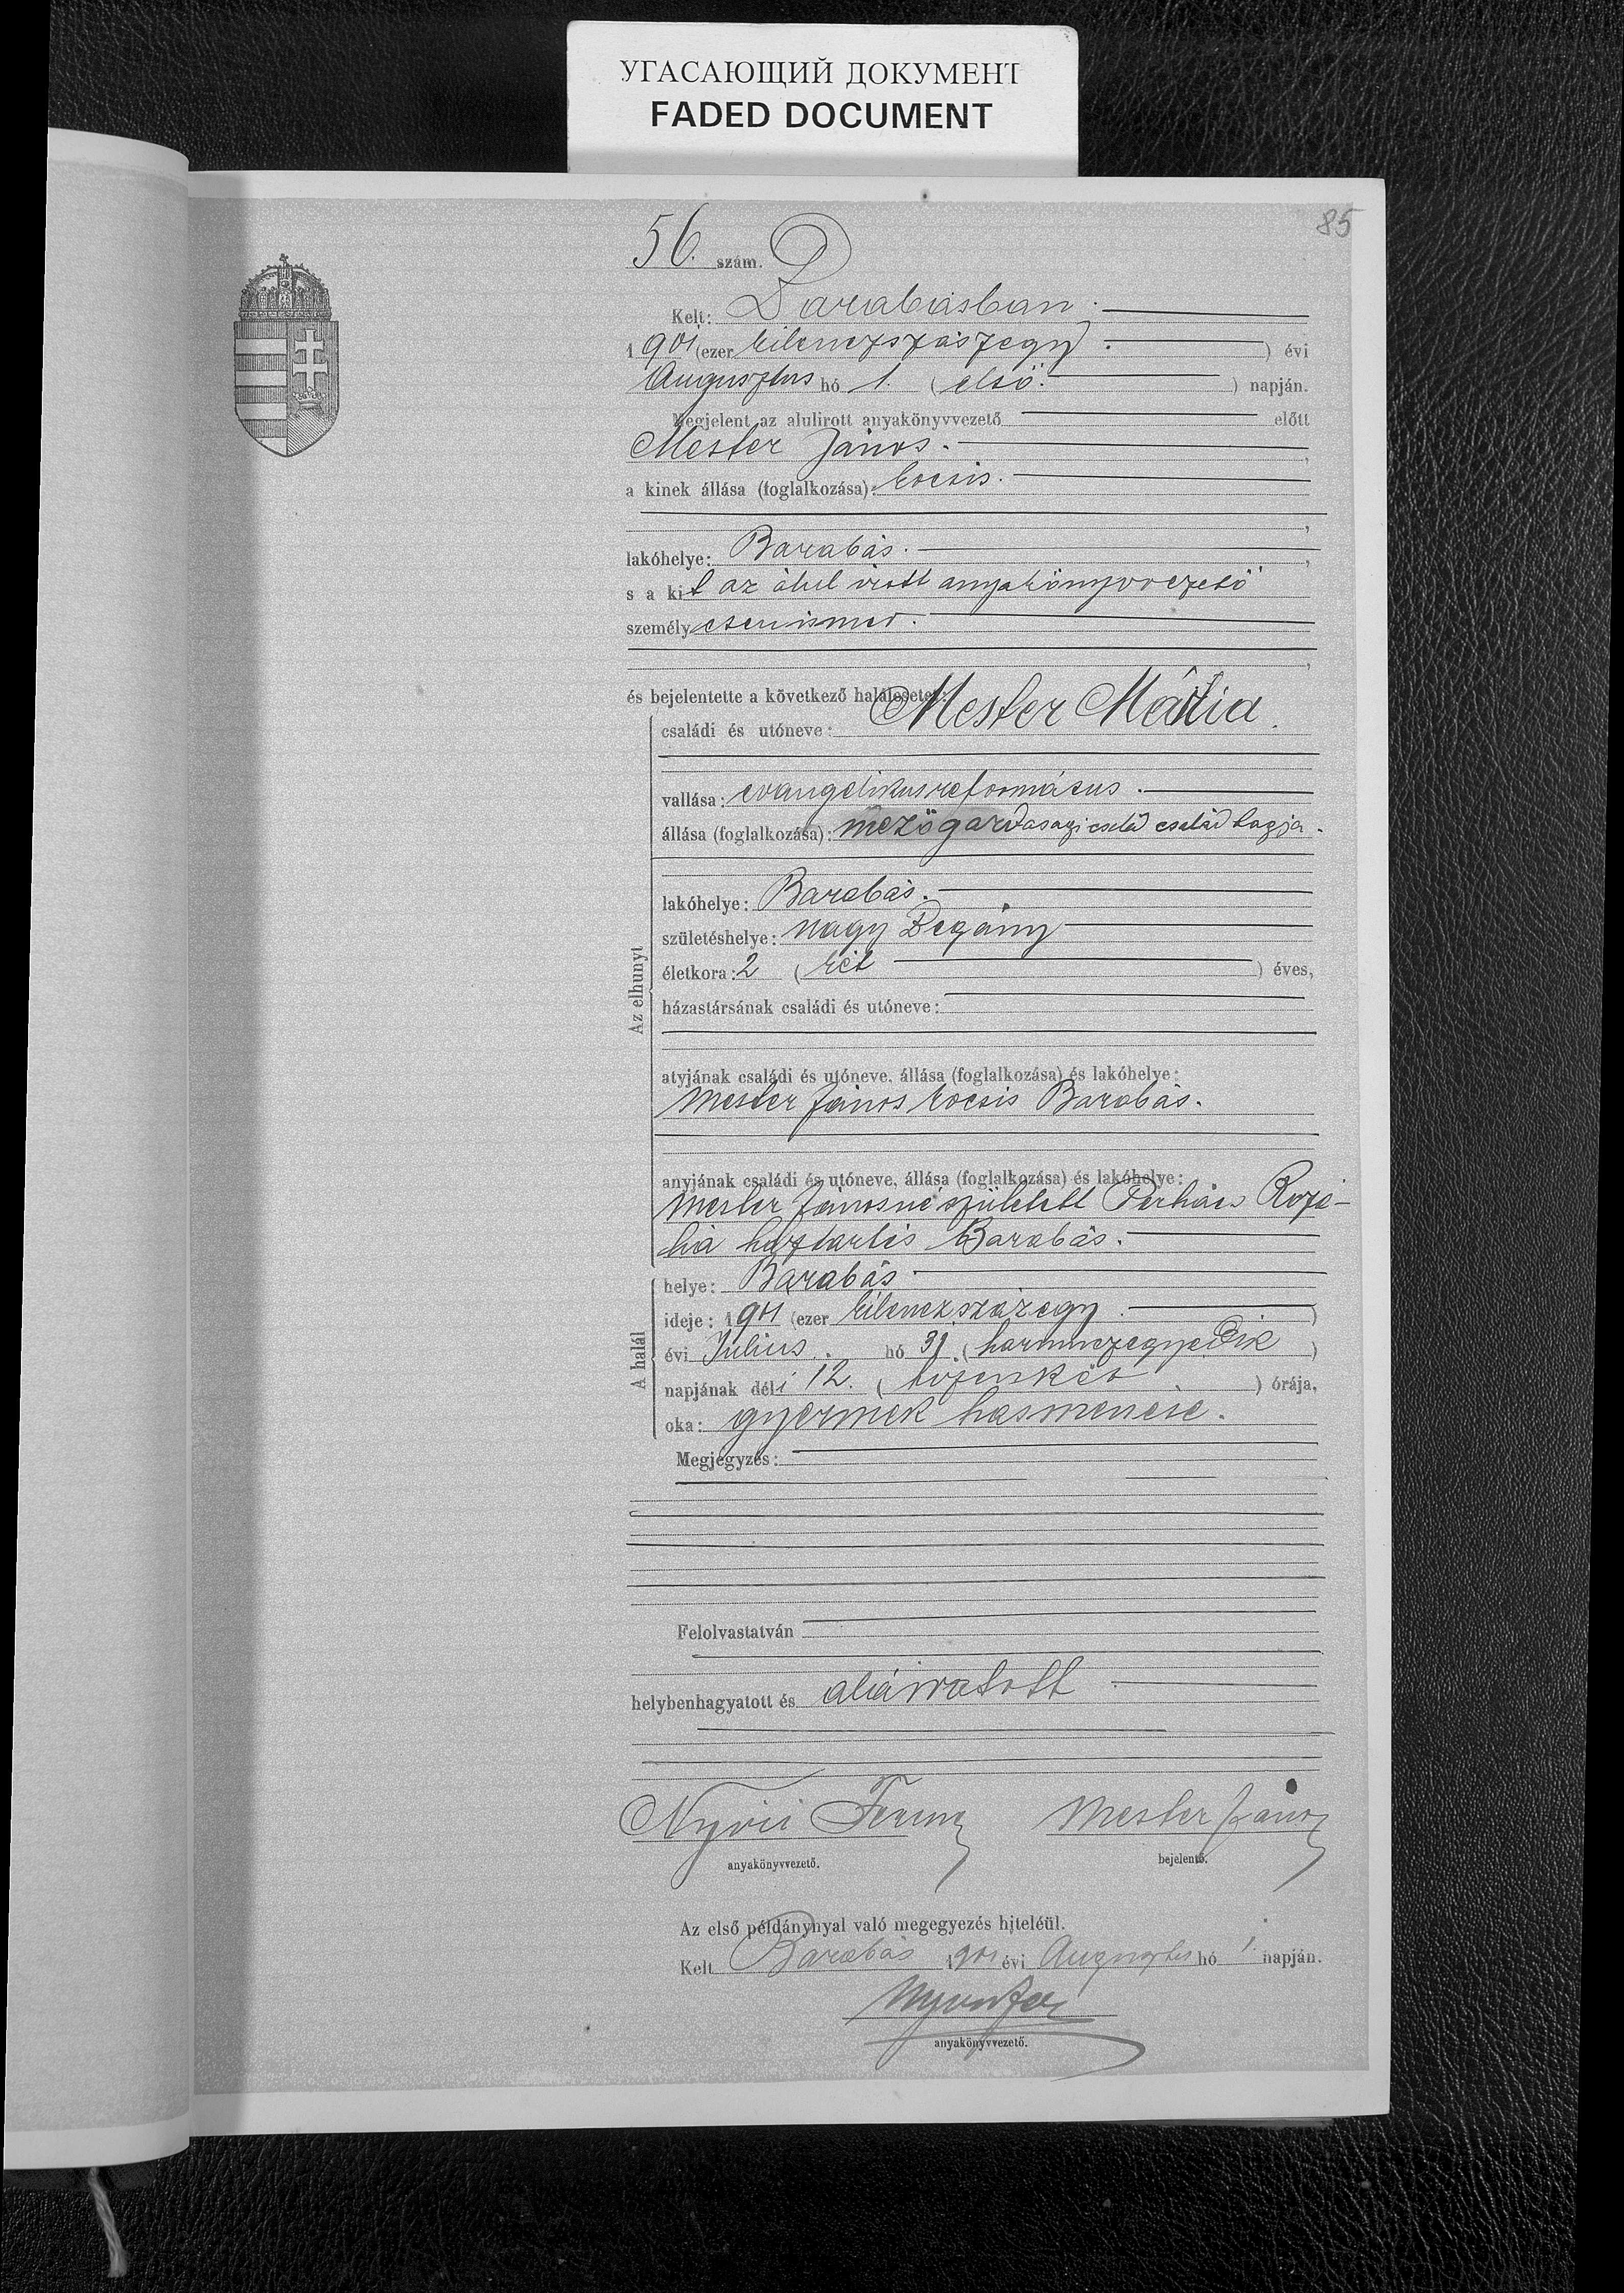 УГАСАЮЩИЙ ДОКУМЕНТ
FADED DOCUMENT
85
56. szám.
Kelt: Barabásban.
1901 (ezer kilenczszázegy.) évi
Augusztus hó 1. (első.) napján.
Megjelent az alulirott anyakönyvvezető előtt
Mester János.
a kinek állása (foglalkozása): kocsis.
lakóhelye: Barabás.
s a kit az álul irott anyakönyvvezető
személyesen ismer.
és bejelentette a következő halálesetet:
családi és utóneve: Mester Mária.
vallása: evangelikus református.
állása (foglalkozása): mezőgazdasagi cseléd család tagja.
lakóhelye: Barabás.
születéshelye: Nagy Begány
életkora: 2 (két) éves,
házastársának családi és utóneve:
Az elhunyt
atyjának családi és utóneve, állása (foglalkozása) és lakóhelye:
Mester János kocsis Barabás.
anyjának családi és utóneve, állása (foglalkozása) és lakóhelye:
Mester Jánosné született Rozá-
lia háztartás Barabás.
helye: Barabás.
ideje: 1901 (ezer kilenczszázegy.)
évi Julius hó 31. (harminczegyedik)
A halál
napjának déli 12. (tizenkét) órája,
oka: gyermek hasmenése.
Megjegyzés:
Felolvastatván
helybenhagyatott és aláiratott
Ferencz Mester János
anyakönyvvezető. bejelentő.
Az első példánynyal való megegyezés hiteléül.
Kelt Barabás 1901 évi Augusztus hó 1. napján.
anyakönyvvezető.